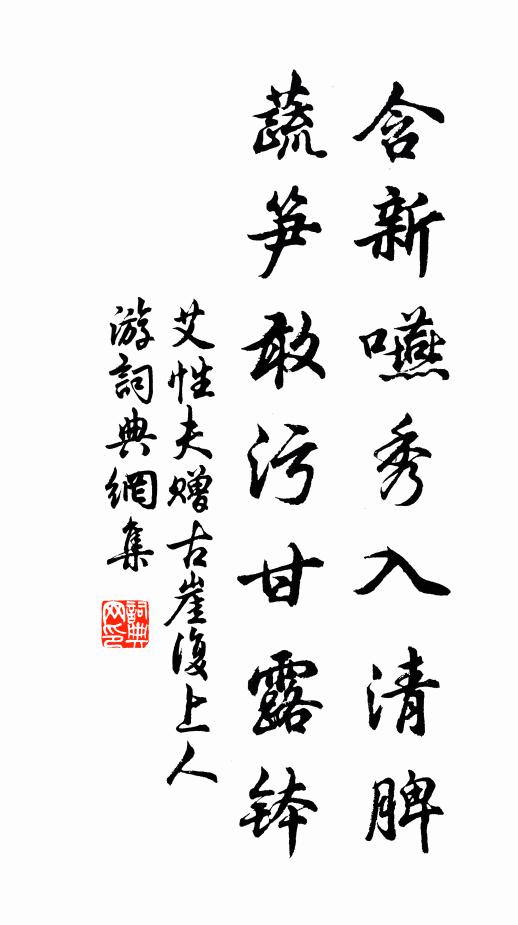 含新嚥秀入清脾
蔬笋敢污甘露钵
艾性夫赠古崖復上人
游詞典網集
詞典网印